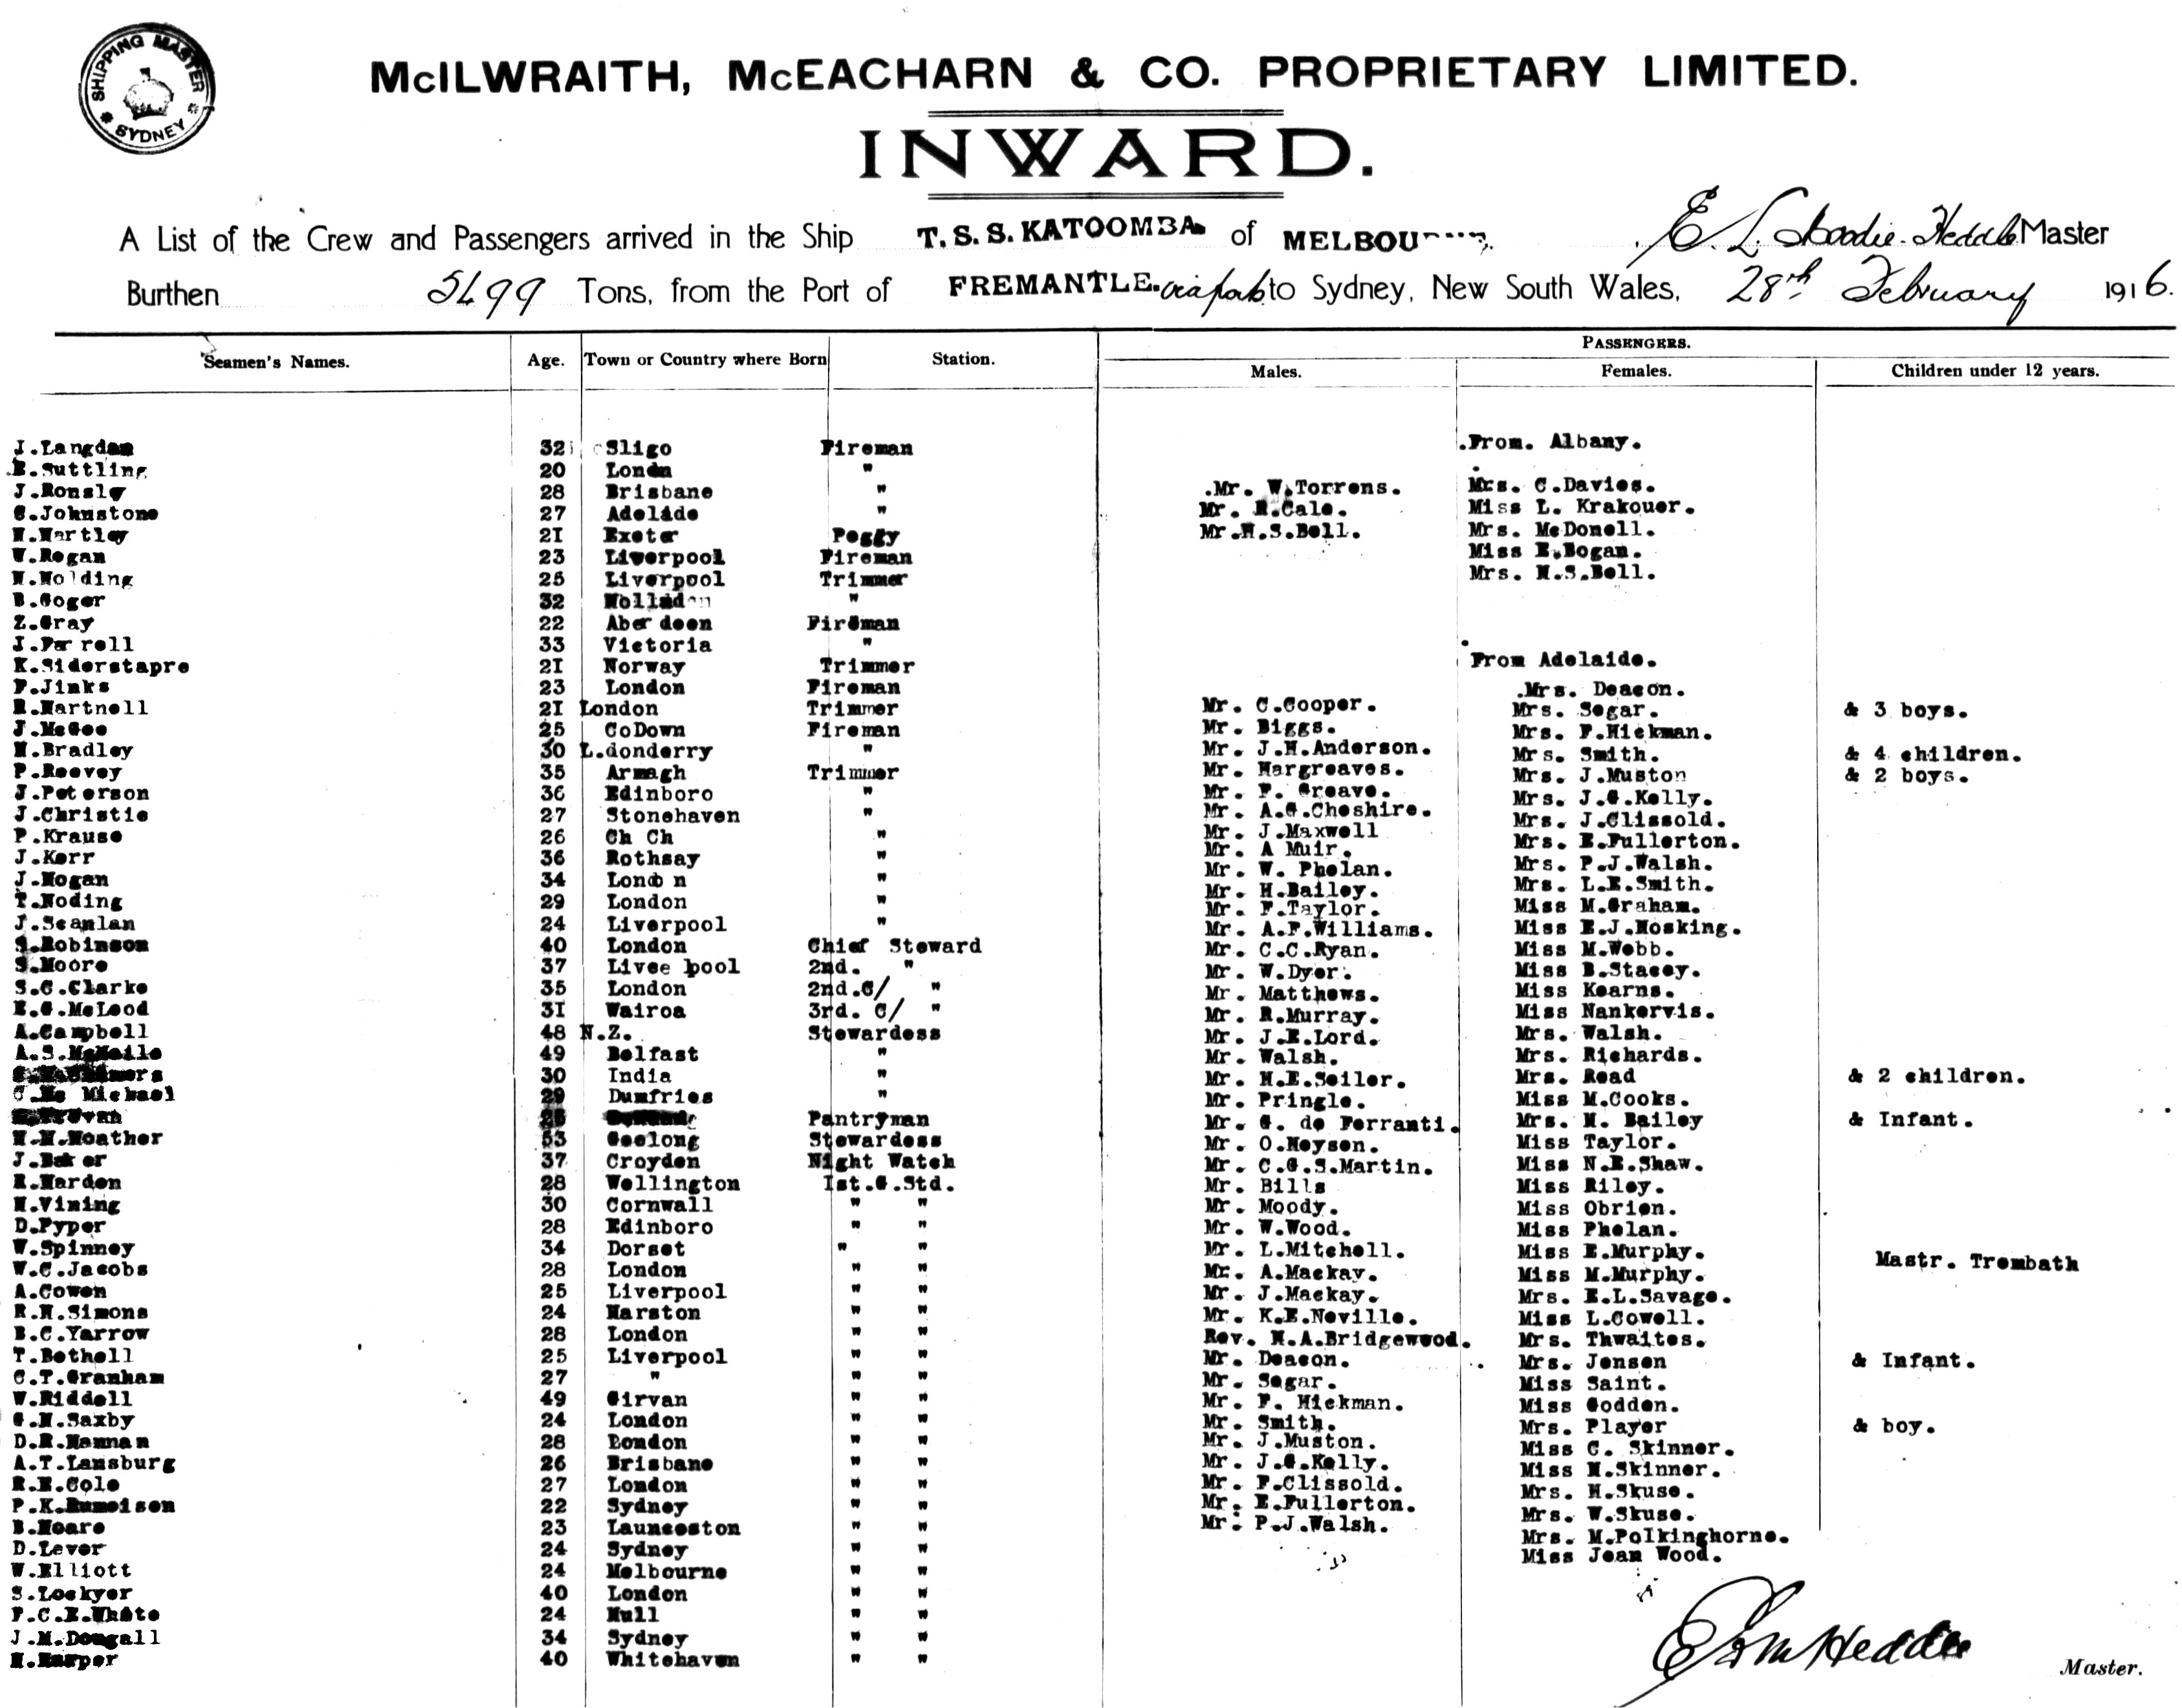 SHIPPING MASTER
SYDNEY
McILWRAITH, McEACHARN & CO. PROPRIETARY LIMITED.
INWARD.
A List of the Crew and Passengers arrived in the Ship T.S.S. KATOOMBA of MELBOU Heddle Master
Burthen 5499 Tons, from the Port of FREMANTLE. via ports to Sydney, New South Wales, 28th February 1916.
PASSENGERS.
Seamen's Names. Age. Town or Country where Born Station. Males. Females. Children under 12 years.
From. Albany.
J.Langdan 32 Sligo Fireman
E.Suttling 20 Londn "
J.Ronsly 28 Brisbane " Mr. W.Torrens. Mrs. C.Davies.
C.Johnstone 27 Adelide " Mr. R.Cale. Miss L. Krakouer.
H.Hartley 2I Exeter Peggy Mr.H.S.Bell. Mrs. McDonell.
W.Regan 23 Liverpool Fireman Miss E.Hogan.
H.Holding 25 Liverpool Trimmer Mrs. H.S.Bell.
B.Goger 32 "
Z.Gray 22 Aber deen Fireman
J.Far rell 33 Victoria "
K.Siderstapre 2I Norway Trimmer From Adelaide.
P.Jinks 23 London Fireman Mrs. Deacon.
R.Hartnell 2I London Trimmer Mr. C.Cooper. Mrs. Segar. & 3 boys.
J.McGee 25 CoDown Fireman Mr. Biggs. Mrs. F.Hickman.
H.Bradley 30 L.donderry " Mr. J.H.Anderson. Mrs. Smith. & 4 children.
P.Reevey 35 Armagh Trimmer Mr. Hargreaves. Mrs. J.Muston & 2 boys.
J.Peterson 36 Edinboro " Mr. F. Greave. Mrs. J.G.Kelly.
J.Christie 27 Stonehaven " Mr. A.G.Cheshire. Mrs. J.Clissold.
P.Krause 26 Ch Ch " Mr. J.Maxwell Mrs. E.Fullerton.
J.Kerr 36 Rothsay " Mr. A Muir. Mrs. P.J.Walsh.
J.Hogan 34 Londo n " Mr. W. Phelan. Mrs. L.E.Smith.
T.Hoding 29 London " Mr. H.Bailey. Miss M.Graham.
J.Scanlan 24 Liverpool " Mr. F.Taylor. Miss E.J.Hosking.
S.Robinson 40 London Chief Steward Mr. A.F.Williams. Miss M.Webb.
S.Moore 37 Livee pool 2nd. " Mr. C.C.Ryan. Miss B.Stacey.
S.C.Clarke 35 London 2nd.C/ " Mr. W.Dyer. Miss Kearns.
E.G.McLeod 3I Wairoa 3rd. C/ " Mr. Matthews. Miss Nankervis.
A.Campbell 48 N.Z. Stewardess Mr. R.Murray. Mrs. Walsh.
A.S.McNeile 49 Belfast " Mr. J.E.Lord. Mrs. Richards.
30 India " Mr. Walsh. Mrs. Read & 2 children.
C.Mc Michael 29 Dumfries " Mr. H.E.Seiler. Miss M.Cooks.
Pantryman Mr. Pringle. Mrs. H. Bailey & Infant.
H.H.Heather 53 Geelong Stewardess Mr. G. de Ferranti. Miss Taylor.
J.Baker 37 Croyden Night Watch Mr. O.Heyson. Miss N.E.Shaw.
R.Harden 28 Wellington Ist.C.Std. Mr. C.G.S.Martin. Miss Riley.
H.Vining 30 Cornwall " " Mr. Bills Miss Obrien.
D.Pyper 28 Edinboro " " Mr. Moody. Miss Phelan.
W.Spinney 34 Dorset " " Mr. W.Wood. Miss E.Murphy.
W.C.Jacobs 28 London " " Mr. L.Mitchell. Miss M.Murphy. Mastr. Trembath
A.Cowen 25 Liverpool " " Mr. A.Mackay. Mrs. E.L.Savage.
R.H.Simons 24 Harston " " Mr. J.Mackay. Miss L.Cowell.
B.C.Yarrow 28 London " " Mr. K.E.Neville. Mrs. Thwaites.
T.Bethell 25 Liverpool " " Rev. H.A.Bridgewood. Mrs. Jensen & Infant.
C.T.Granham 27 " " " Mr. Deacon. Miss Saint.
W.Riddell 49 Girvan " " Mr. Segar. Miss Godden.
G.H.Saxby 24 London " " Mr. F. Hickman. Mrs. Player & boy.
D.R.Hannan 28 London " " Mr. Smith. Miss C. Skinner.
A.T.Lansburg 26 Brisbane " " Mr. J.Muston. Miss H.Skinner.
R.E.Cole 27 London " " Mr. J.G.Kelly. Mrs. H.Skuse.
P.K.Rumeisen 22 Sydney " " Mr. F.Clissold. Mrs. W.Skuse.
B.Hoare 23 Launceston " " Mr. E.Fullerton. Mrs. M.Polkinghorne.
D.Lever 24 Sydney " " Mr. P.J.Walsh. Miss Jean Wood.
W.Elliott 24 Melbourne " "
S.Lockyer 40 London " "
F.C.E.White 24 Hull " "
J.M.Dougall 34 Sydney " "
H.Harper 40 Whitehaven " "
Heddle Master.